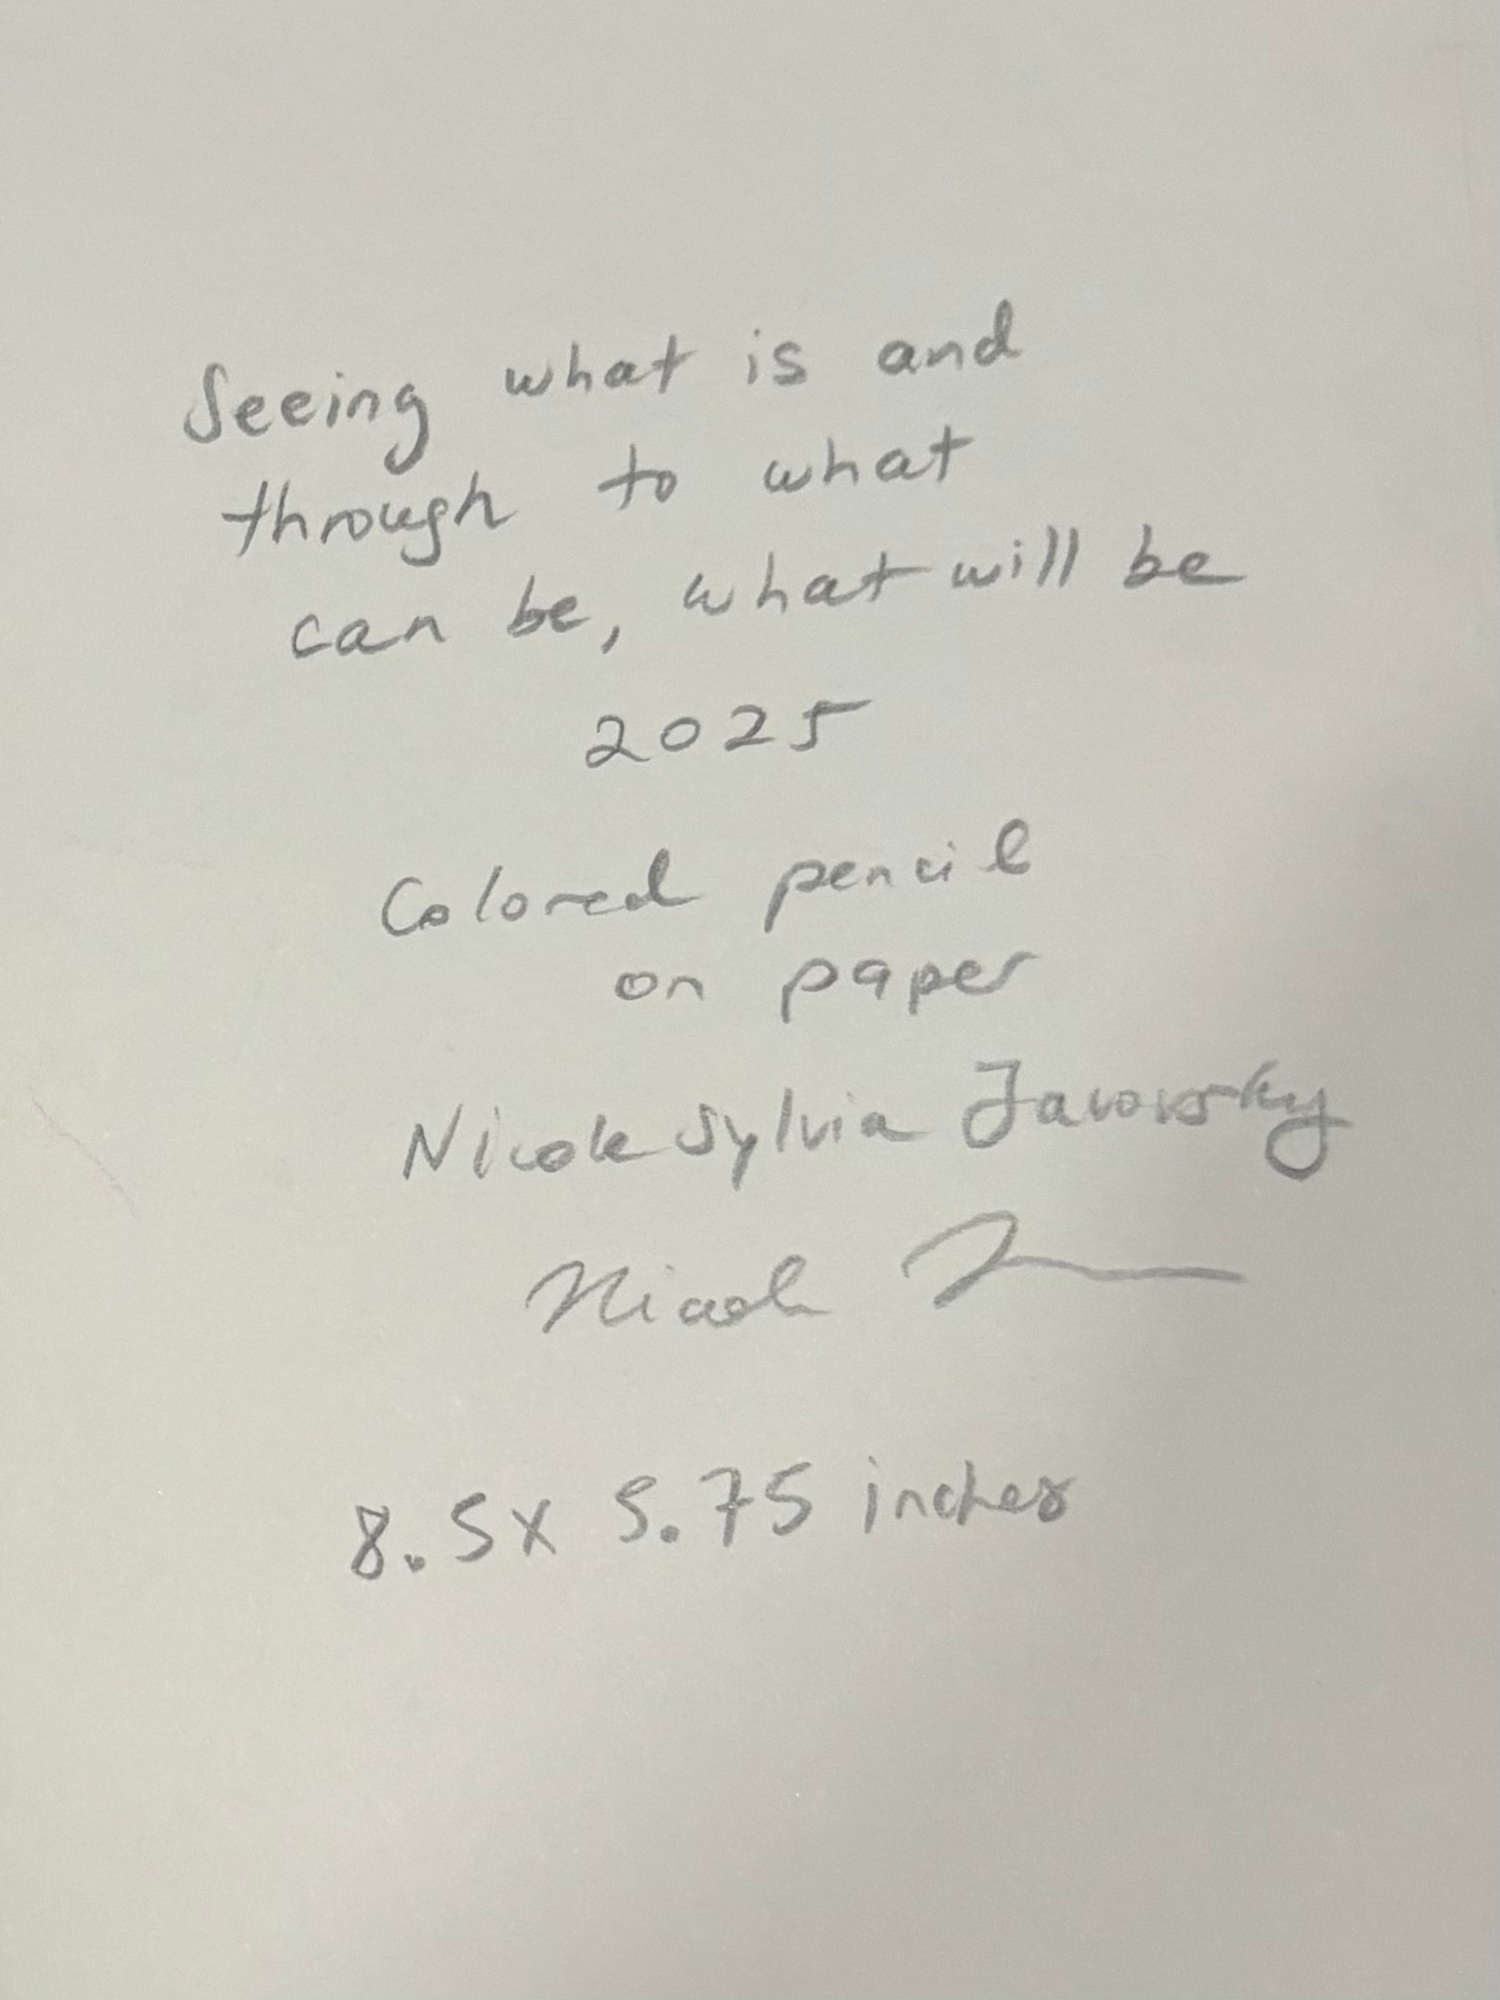 Seeing what is and
through to what
can be, what will be
2025
Colored pencil
on paper
Nicole Sylvia Javorsky
Nicole
8.5x 5.75 inches